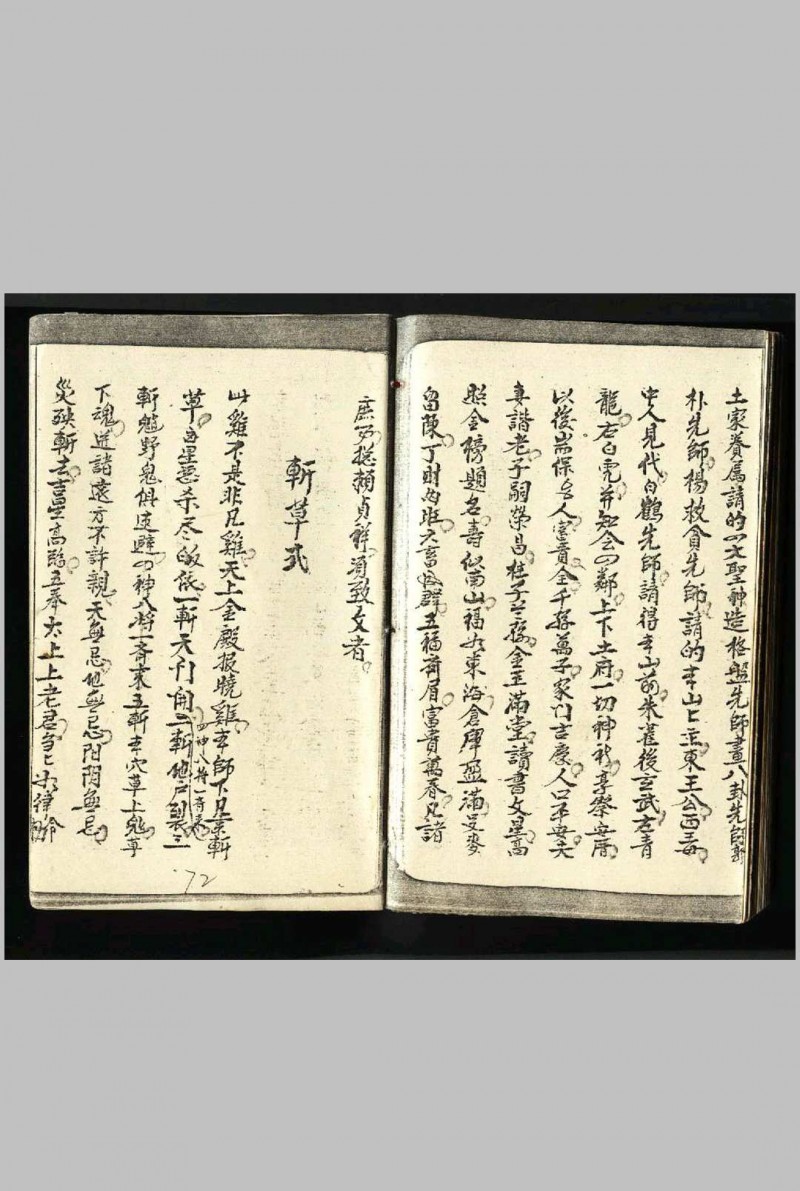 土家眷属請的四文聖神造格盤先師畫八卦先師郭
朴先師楊救貧先師請的本山上立東王公西王母
中人見代白鶴先師請得本山前朱雀後玄武左青
龍右白虎并知会四鄰上下土府一切神祈享祭安厝
以後耑保吉人富貴全千孫萬子家门吉慶人口平安夫
妻諧老子嗣榮昌桂子兰孫金玉滿堂讀書文星高
照金榜題名壽似南山福如东海倉庫盈滿
留陳丁財两旺六畜成群五福齊眉富貴萬春凡諸
庶务総賴貞祥須致文者
斬草式
此雞不是非凡雞天上金殿报晓雞本師下凡來斬
草凶星惡杀尽皈依一斬天门開二斬地户裂三
四神八将一斉
斬魑野鬼俱速避四神八将一斉來五斬本穴草上鬼
下魂送諸遠方不許親天無忌地無忌阴陽無忌
災殃斬去吉星高臨五奉太上上老君急急如律令
72